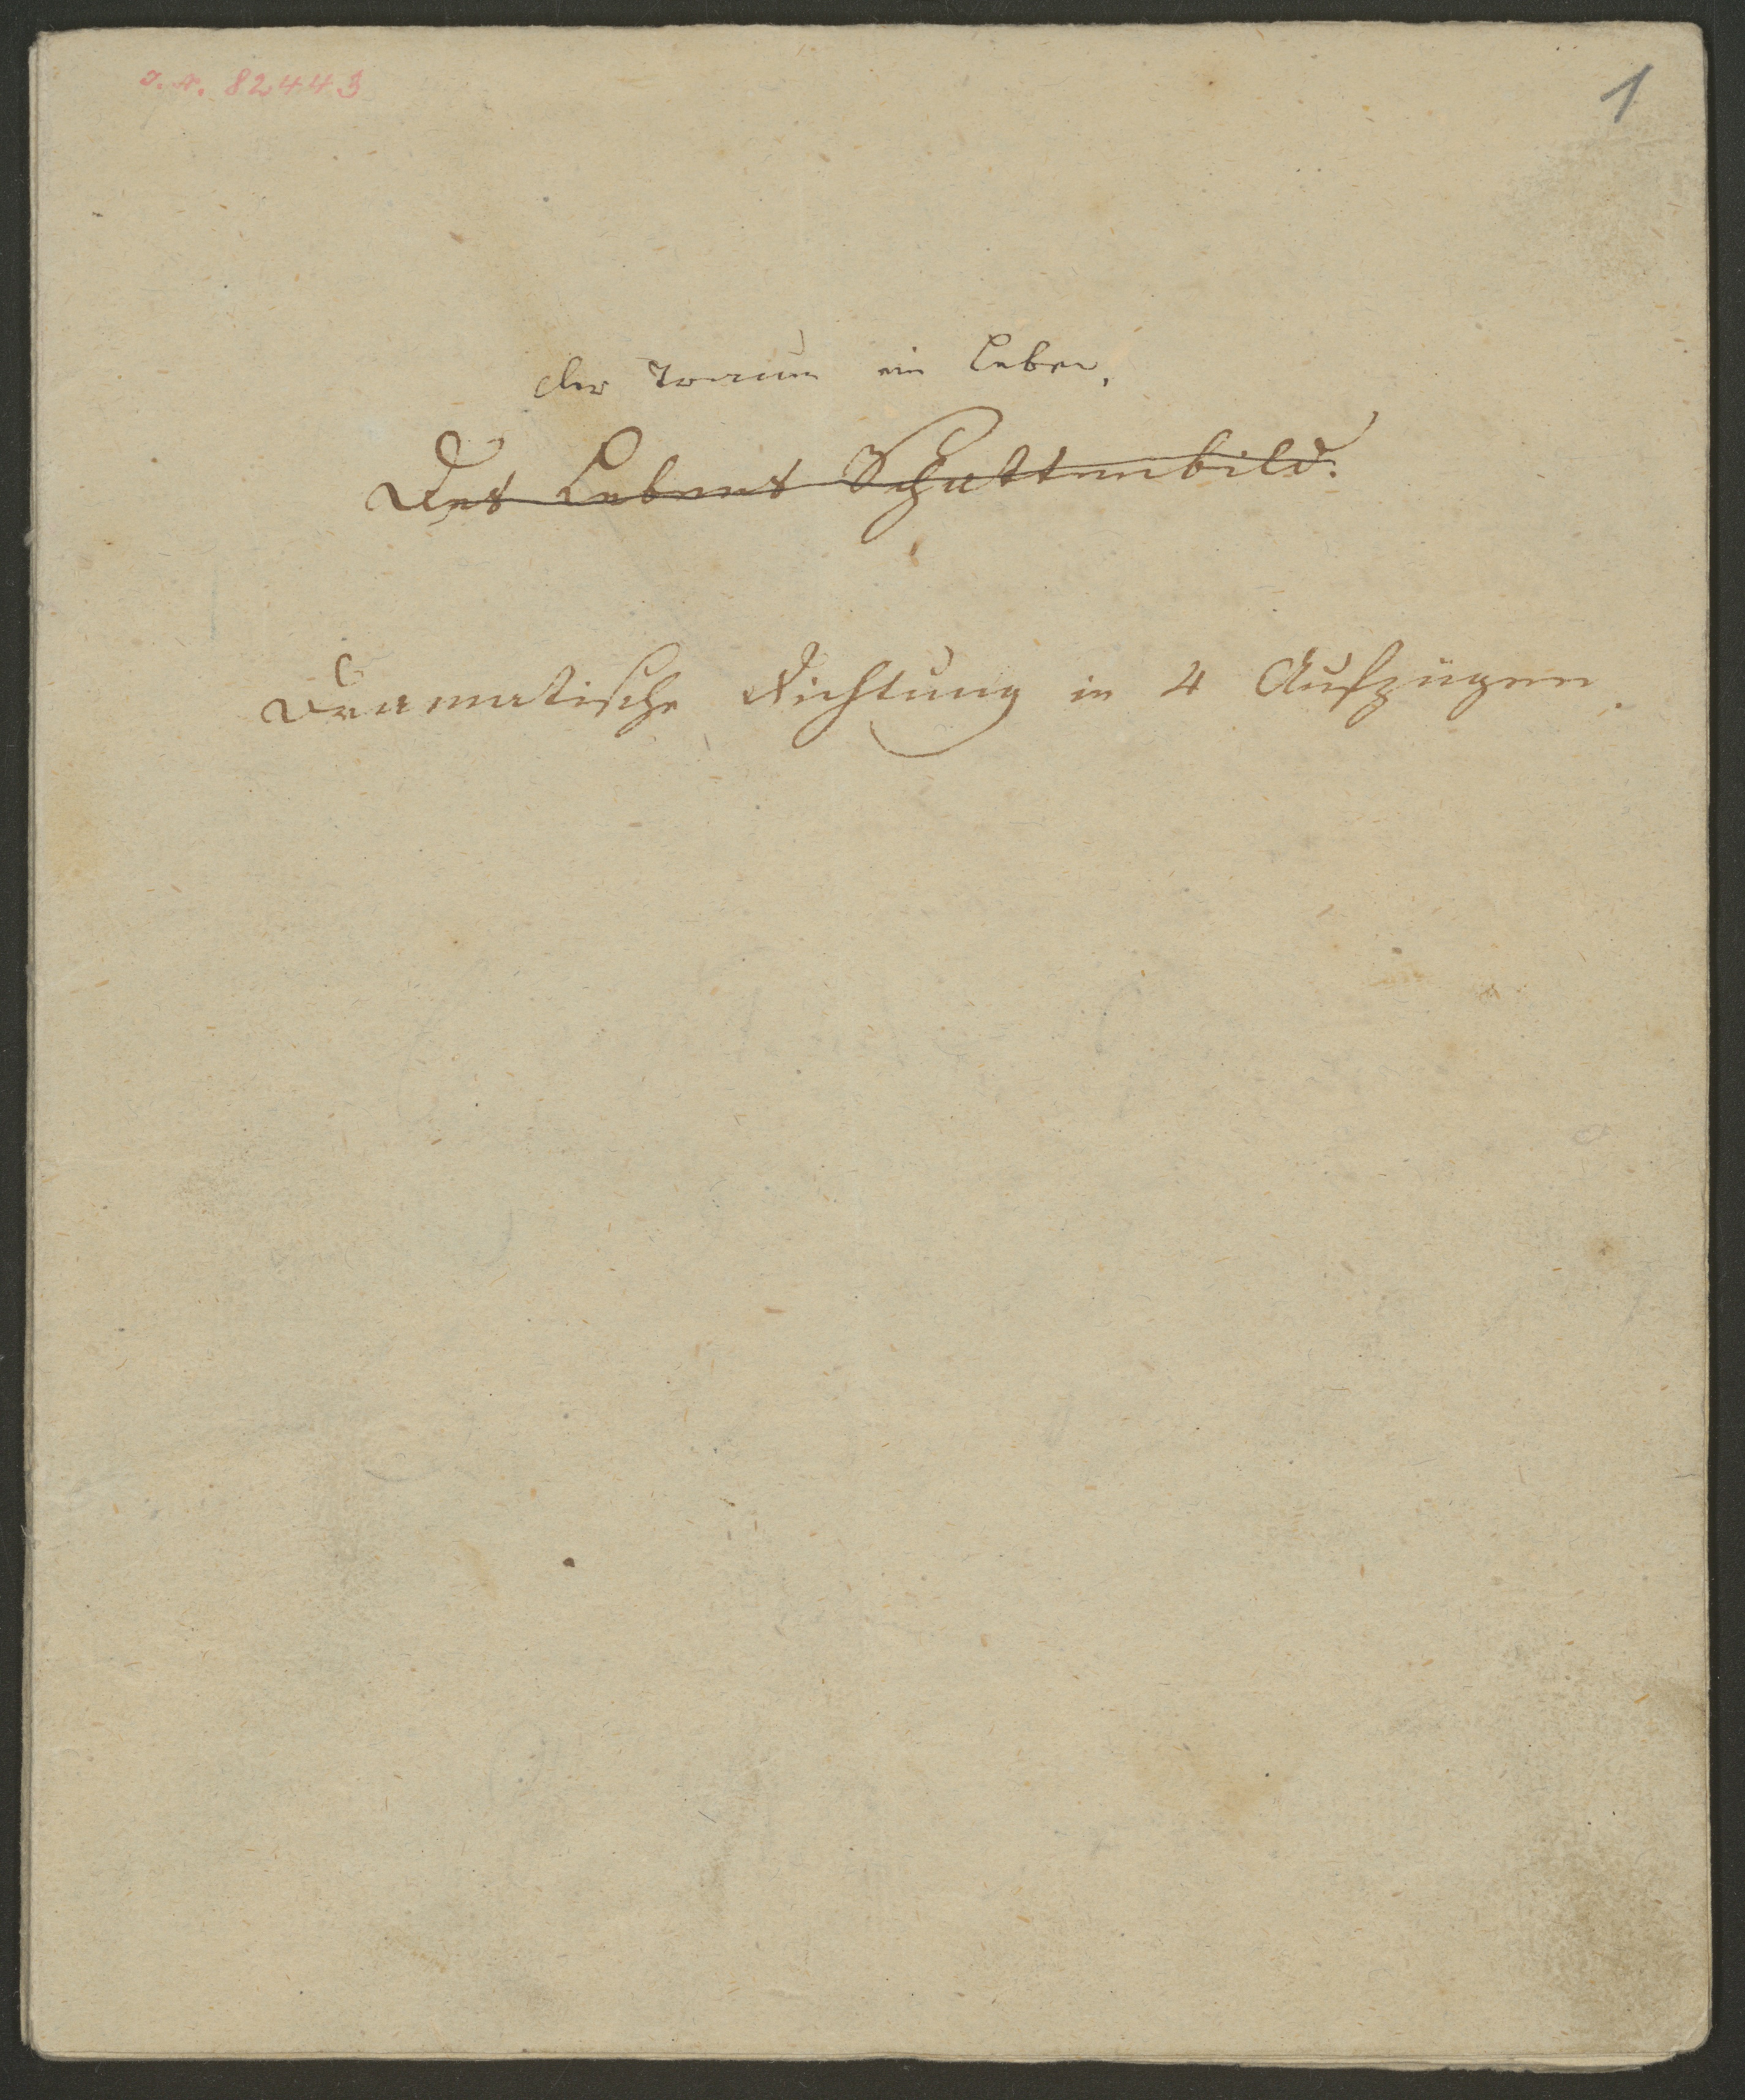 J. N. 82443
1
Der Traum ein Leben.
Des Lebens Schattenbild.
Dramatische Dichtung in 4 Aufzügen.